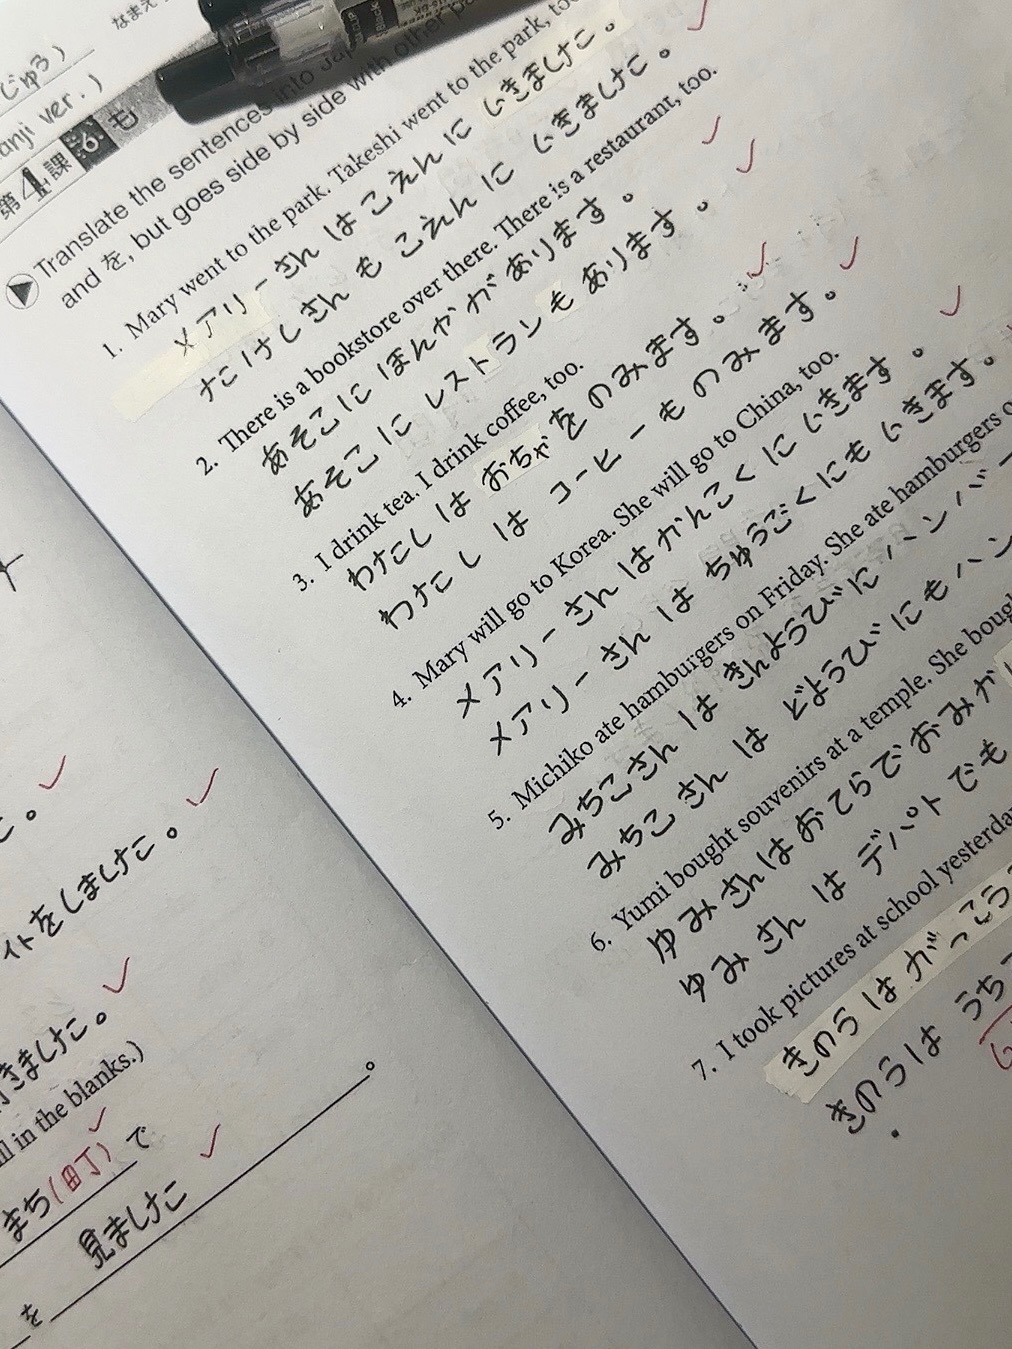 なまえ
じゅう)
anji ver.)
第4課 6 も
Translate the sentences into Jap
and を, but goes side by side with other pa
1. Mary went to the park. Takeshi went to the park, too.
メアリーさん は こえんに いきました。
たけしさん も こえんに いきました。
2. There is a bookstore over there. There is a restaurant, too.
あそこに ほんやが あります。
あそこに レストランも あります。
3. I drink tea. I drink coffee, too.
わたし は おちゃを のみます。
わたし は コーヒーも のみます。
4. Mary will go to Korea. She will go to China, too.
メアリーさん は かんこくに いきます。
メアリーさん は ちゅうごくにも いきます。
5. Michiko ate hamburgers on Friday. She ate hamburgers o
みちこさん は きんようびに ハンバー
みちこさん は どようびにも ハン
6. Yumi bought souvenirs at a temple. She bough
ゆみさんは おてらで おみが
ゆみさん は デパートでも
7. I took pictures at school yesterda
きのうは がっこう
きのうは うち
イトをしました。
きました。
ll in the blanks.)
まち(町)で
を 見ました。